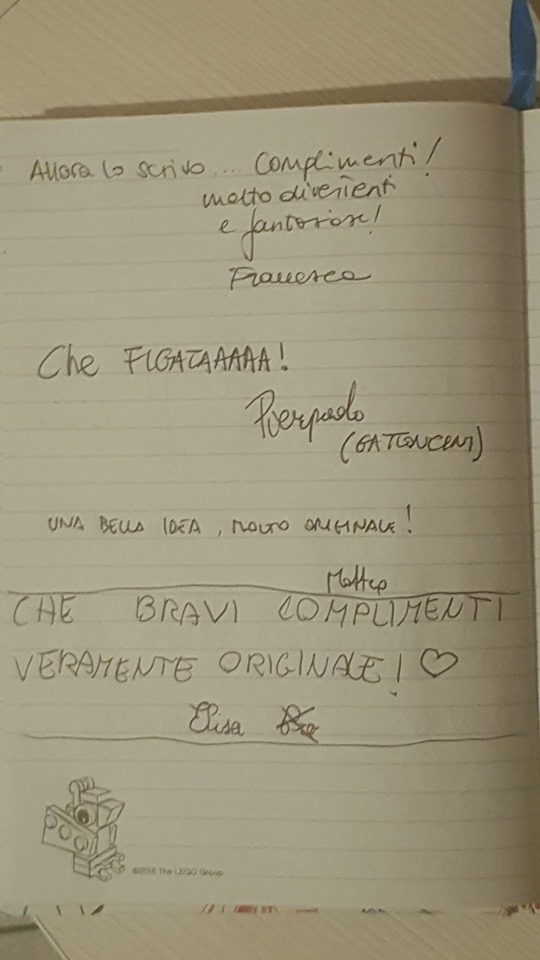 Allora lo scrivo... Complimenti!
molto divertenti
e fantasiose!
Francesca
Che FIGATAAAAA!
Pierpaolo
UNA BELLA IDEA, MOLTO ORIGINALE!
Matteo
CHE BRAVI COMPLIMENTI
VERAMENTE ORIGINALE! ♡
Elisa
©2016 The LEGO Group